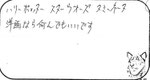 ハリーポッター スターウォーズ ターミネータ
洋画なら何んでもいいです